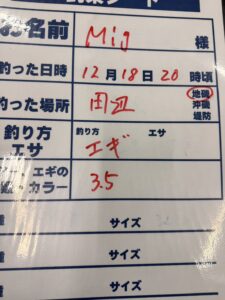 お名前 Mig 様
釣った日時 12月18日20時頃
釣った場所 田皿 地磯 沖磯 堤防
釣り方 エサ 釣り方 エギ エサ
エギの カラー 3.5
サイズ
サイズ
サイズ